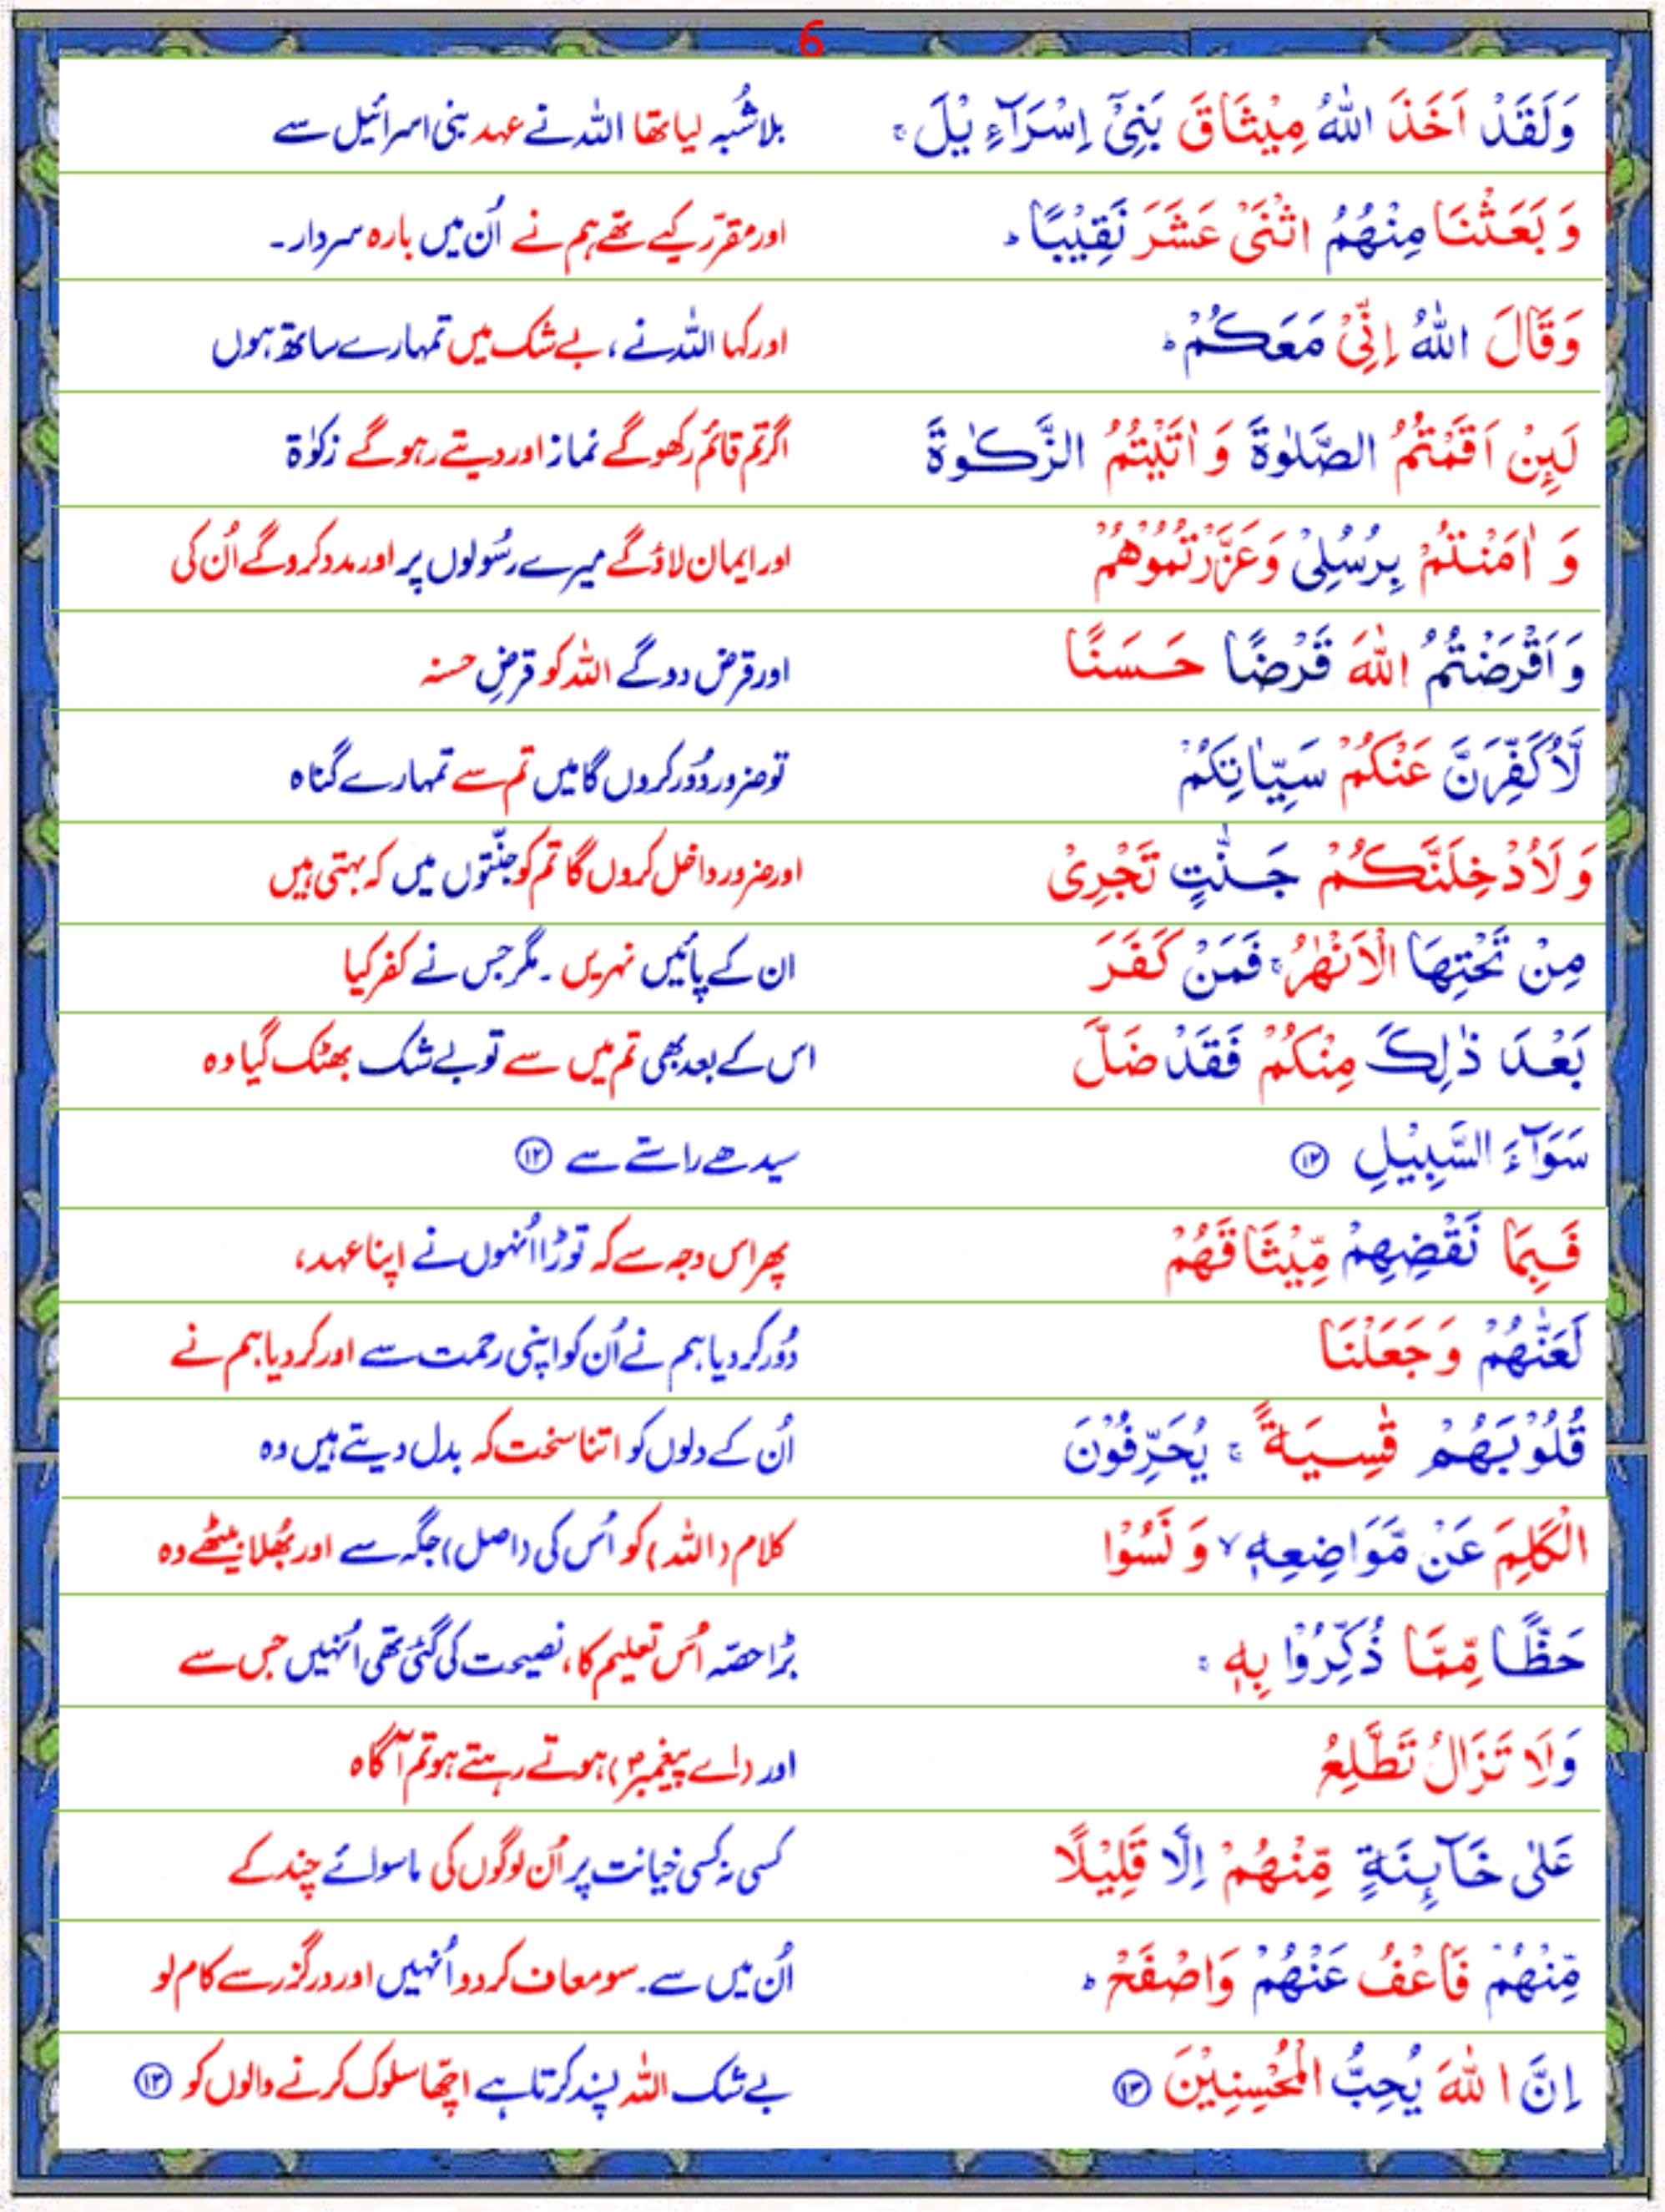 6
وَلَقَدْ اَخَذَ اللّٰهُ مِيْثَاقَ بَنِيْٓ اِسْرَآءِيْلَ ۚ بلاشُبہ لیا تھا اللہ نے عہد بنی اسرائیل سے
وَبَعَثْنَا مِنْهُمُ اثْنَيْ عَشَرَ نَقِيْبًا ؕ اور مقرّر کیے تھے ہم نے اُن میں بارہ سردار۔
وَقَالَ اللّٰهُ اِنِّيْ مَعَكُمْ ؕ اور کہا اللہ نے، بے شک میں تمہارے ساتھ ہوں
لَىِٕنْ اَقَمْتُمُ الصَّلٰوةَ وَاٰتَيْتُمُ الزَّكٰوةَ اگر تم قائم رکھو گے نماز اور دیتے رہو گے زکوٰۃ
وَاٰمَنْتُمْ بِرُسُلِيْ وَعَزَّرْتُمُوْهُمْ اور ایمان لاؤ گے میرے رسُولوں پر اور مدد کرو گے اُن کی
وَاَقْرَضْتُمُ اللّٰهَ قَرْضًا حَسَنًا اور قرض دو گے اللہ کو قرضِ حسنہ
لَّاُكَفِّرَنَّ عَنْكُمْ سَيِّاٰتِكُمْ تو ضرور دُور کروں گا میں تم سے تمہارے گناہ
وَلَاُدْخِلَنَّكُمْ جَنّٰتٍ تَجْرِيْ اور ضرور داخل کروں گا تم کو جنّتوں میں کہ بہتی ہیں
مِنْ تَحْتِهَا الْاَنْهٰرُ ۚ فَمَنْ كَفَرَ ان کے پائیں نہریں۔ مگر جس نے کفر کیا
بَعْدَ ذٰلِكَ مِنْكُمْ فَقَدْ ضَلَّ اس کے بعد بھی تم میں سے تو بے شک بھٹک گیا وہ
سَوَآءَ السَّبِيْلِ ۝۱۲ سیدھے راستے سے ۝۱۲
فَبِمَا نَقْضِهِمْ مِّيْثَاقَهُمْ پھر اس وجہ سے کہ توڑا اُنہوں نے اپنا عہد،
لَعَنّٰهُمْ وَجَعَلْنَا دُور کر دیا ہم نے اُن کو اپنی رحمت سے اور کر دیا ہم نے
قُلُوْبَهُمْ قٰسِيَةً ۚ يُحَرِّفُوْنَ اُن کے دلوں کو اتنا سخت کہ بدل دیتے ہیں وہ
الْكَلِمَ عَنْ مَّوَاضِعِهٖ ۙ وَنَسُوْا کلام (اللہ) کو اُس کی (اصل) جگہ سے اور بھُلا بیٹھے وہ
حَظًّا مِّمَّا ذُكِّرُوْا بِهٖ ۚ بڑا حصّہ اُس تعلیم کا، نصیحت کی گئی تھی اُنہیں جس سے
وَلَا تَزَالُ تَطَّلِعُ اور (اے پیغمبرؐ) ہوتے رہتے ہو تم آگاہ
عَلٰى خَآىِٕنَةٍ مِّنْهُمْ اِلَّا قَلِيْلًا کسی نہ کسی خیانت پر اُن لوگوں کی ماسوائے چند کے
مِّنْهُمْ فَاعْفُ عَنْهُمْ وَاصْفَحْ ؕ اُن میں سے۔ سو معاف کر دو اُنہیں اور درگزر سے کام لو
اِنَّ اللّٰهَ يُحِبُّ الْمُحْسِنِيْنَ ۝۱۳ بے شک اللہ پسند کرتا ہے اچّھا سلوک کرنے والوں کو ۝۱۳